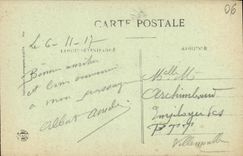 06
CARTE POSTALE
Le 6-11-17
CORRESPONDANCE
ADRESSE
Bonne amitié
et bon souvenir
à mon passage
Albert
Melle M
Archimbaud
Employée des